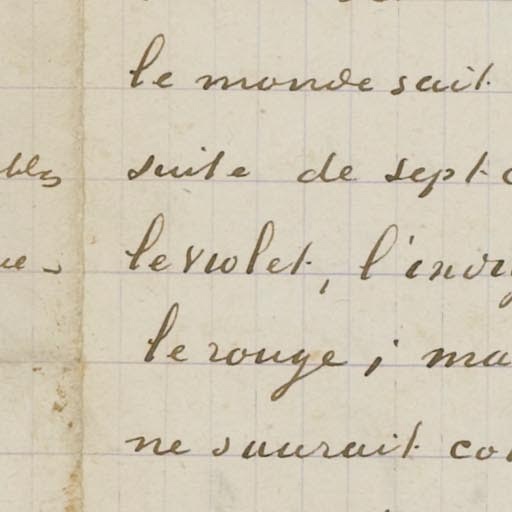 le monde sait
suite de sept
le violet, l'indig
le rouge ; ma
ne saurait co